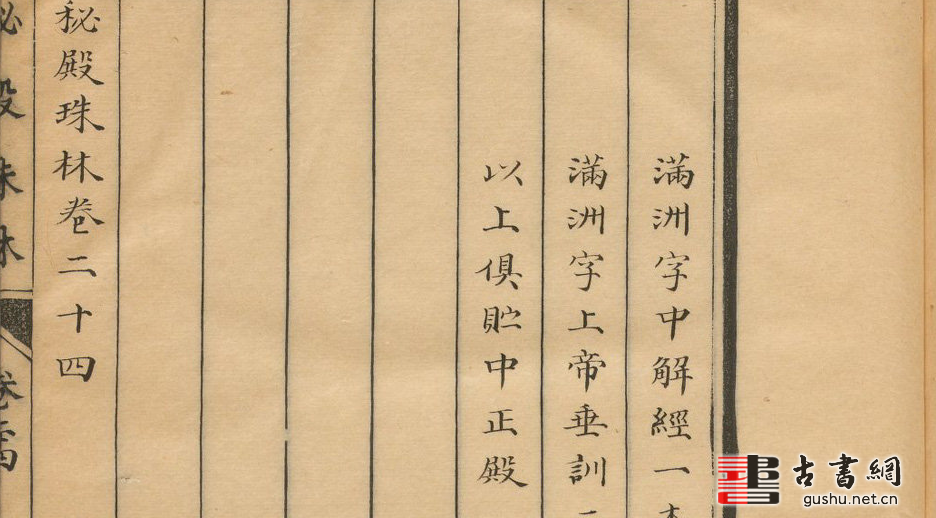 滿洲字中解經一本
滿洲字上帝垂訓一
以上俱貯中正殿
秘殿珠林卷二十四
秘殿珠林
古書網
gushu.net.cn